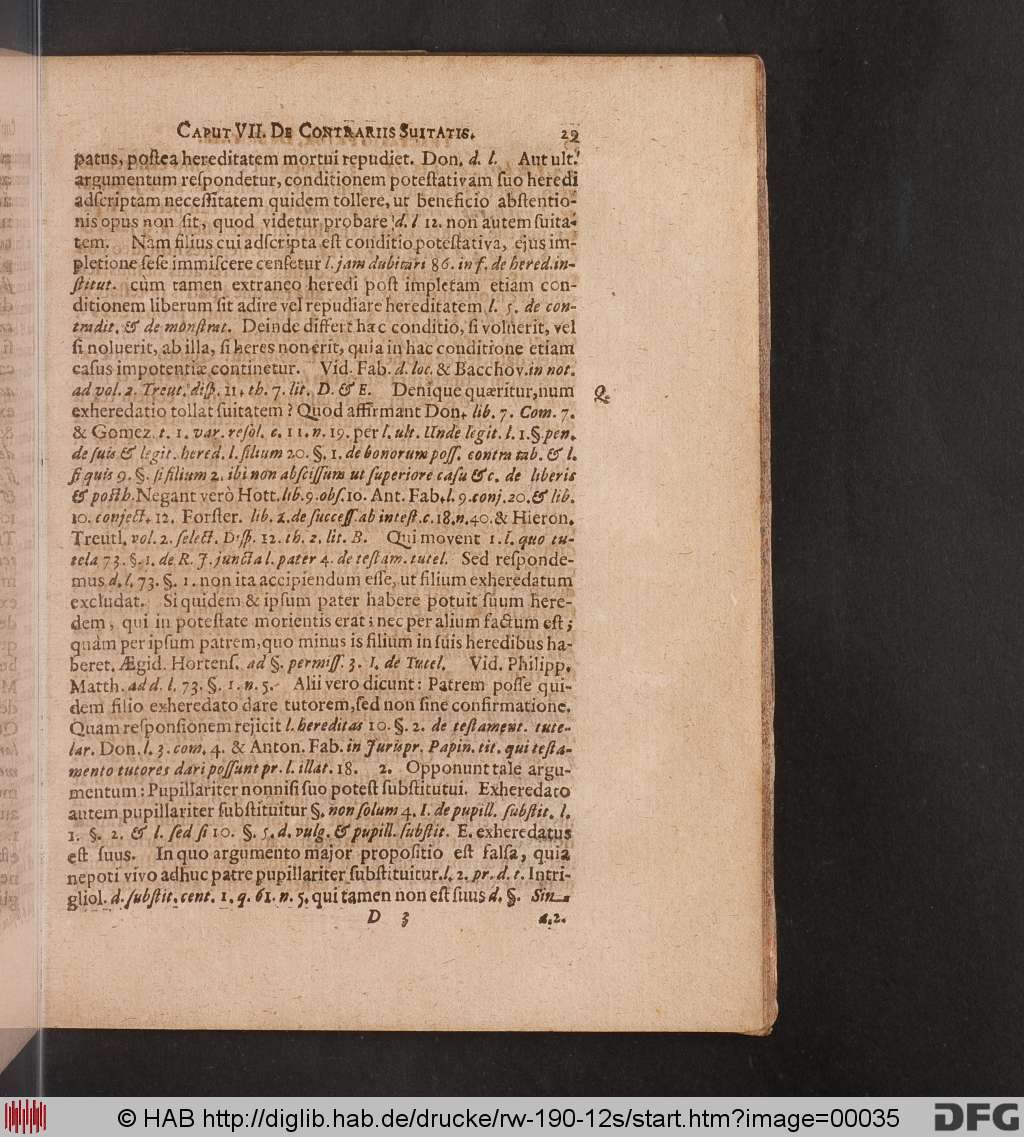 CAPUT VII. DE CONTRARIIS SUITATIS. 29
patus, postea hereditatem mortui repudiet. Don. d. l. Aut ult.
argumentum respondetur, conditionem potestativam suo heredi
adscriptam necessitatem quidem tollere, ut beneficio abstentio-
nis opus non sit, quod videtur probare d. l 12. non autem suita-
tem. Nam filius cui adscripta est conditio potestativa, ejus im-
pletione sese immiscere censetur l. jam dubitari 86. in f. de hered. in-
stitut. cum tamen extraneo heredi post impletam etiam con-
ditionem liberum sit adire vel repudiare hereditatem l. 5. de con-
tradit. & de monstrat. Deinde differt hæc conditio, si voluerit, vel
si noluerit, ab illa, si heres non erit, quia in hac conditione etiam
casus impotentiæ continetur. Vid. Fab. d. loc. & Bacchov. in not.
ad vol. 2. Treut. disp. 11. th. 7. lit. D. & E. Denique quæritur, num Q.
exheredatio tollat suitatem? Quod affirmant Don. lib. 7. Com. 7.
& Gomez. t. 1. var. resol. c. 11. n. 19. per l. ult. Unde legit. l. 1. §. pen.
de suis & legit. hered. l. filium 20. §. 1. de bonorum poss. contra tab. & l.
si quis 9. §. si filium 2. ibi non abscissum ut superiore casu &c. de liberis
& posth. Negant verò Hott. lib. 9. obs. 10. Ant. Fab. l. 9. conj. 20. & lib.
10. conject. 12. Forster. lib. 2. de success. ab intest. c. 18. n. 40. & Hieron.
Treutl. vol. 2. select. Disp. 12. th. 2. lit. B. Qui movent 1. l. quo tu-
tela 73. §. 1. de R. J. juncta l. pater 4. de testam. tutel. Sed responde-
mus d. l. 73. §. 1. non ita accipiendum esse, ut filium exheredatum
excludat. Siquidem & ipsum pater habere potuit suum here-
dem, qui in potestate morientis erat; nec per alium factum est;
quàm per ipsum patrem, quo minus is filium in suis heredibus ha-
beret. Ægid. Hortens. ad §. permiss. 3. I. de Tutel. Vid. Philipp.
Matth. ad d. l. 73. §. 1. n. 5. Alii vero dicunt: Patrem posse qui-
dem filio exheredato dare tutorem, sed non sine confirmatione.
Quam responsionem rejicit l. hereditas 10. §. 2. de testament. tute-
lar. Don. l. 3. com. 4. & Anton. Fab. in Jurispr. Papin. tit. qui testa-
mento tutores dari possunt pr. l. illat. 18. 2. Opponunt tale argu-
mentum: Pupillariter non nisi suo potest substitutui. Exheredato
autem pupillariter substituitur §. non solum 4. I. de pupill. substit. l.
1. §. 2. & l. sed si 10. §. 5. d. vulg. & pupill. substit. E. exheredatus
est suus. In quo argumento major propositio est falsa, quia
nepoti vivo adhuc patre pupillariter substituitur. l. 2. pr. d. t. Intri-
gliol. d. substit. cent. 1. q. 61. n. 5. qui tamen non est suus d. §. Sin-
D 3 2.
© HAB http://diglib.hab.de/drucke/rw-190-12s/start.htm?image=00035 DFG